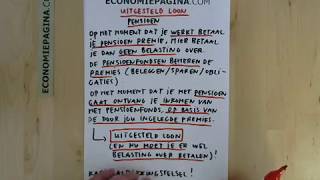 ECONOMIEPAGINA.COM
UITGESTELD LOON
PENSIOEN
OP HET MOMENT DAT JE WERKT BETAAL
JE PENSIOEN PREMIE, HIER BETAAL
JE DAN GEEN BELASTING OVER.
DE PENSIOENFONDSEN BEHEREN DE
PREMIES (BELEGGEN/SPAREN/OBLI-
GATIES)
OP HET MOMENT DAT JE MET PENSIOEN
GAAT ONTVANG JE INKOMEN VAN
HET PENSIOENFONDS, OP BASIS VAN
DE DOOR JOU INGELEGDE PREMIES.
UITGESTELD LOON
(EN NU MOET JE ER WEL
BELASTING OVER BETALEN)!
ECONOMIEPAGINA.COM